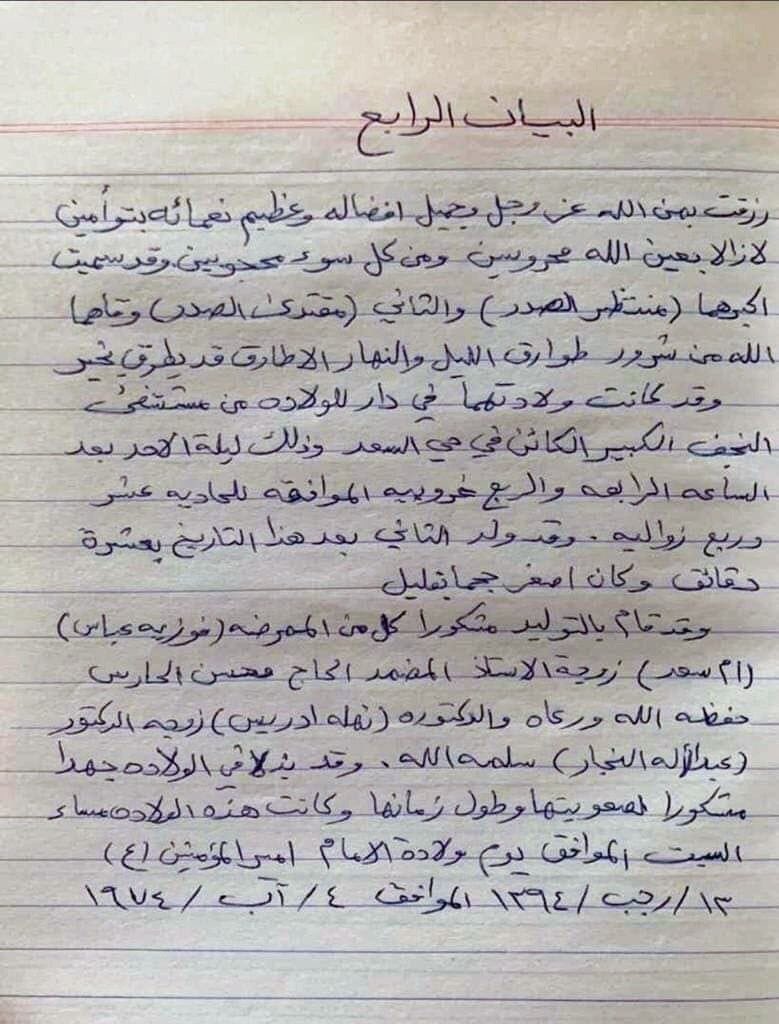 البيان الرابع
رزقت بمن الله عز وجل وجميل افضاله وعظيم نعمائه بتوأمين
لازالا بعين الله محروسين ومن كل سوء محجوبين وقد سميت
اكبرهما (منتظر الصدر) والثاني (مقتدى الصدر) وقاهما
الله من شرور طوارق الليل والنهار الا طارق قد يطرق بخير
وقد كانت ولادتهما في دار للولاده من مستشفى
النجف الكبير الكائن في حي السعد وذلك ليلة الاحد بعد
الساعه الرابعه والربع غروبيه الموافقه للحاديه عشر
وربع زواليه . وقد ولد الثاني بعد هذا التاريخ بعشرة
دقائق وكان اصغر حجما بقليل
وقد قام بالتوليد مشكورا كل من الممرضه (فوزيه عباس)
(ام سعد) زوجة الاستاذ المضمد الحاج محسن الحارس
حفظه الله ورعاه والدكتوره (نهله ادريس) زوجه الدكتور
(عبدالأله النجار) سلمه الله . وقد بذلا في الولاده جهدا
مشكورا لصعوبتها وطول زمانها وكانت هذه الولاده مساء
السبت الموافق يوم ولادة الامام امير المؤمنين (ع)
١٣ / رجب / ١٣٩٤ الموافق ٤ / آب / ١٩٧٤